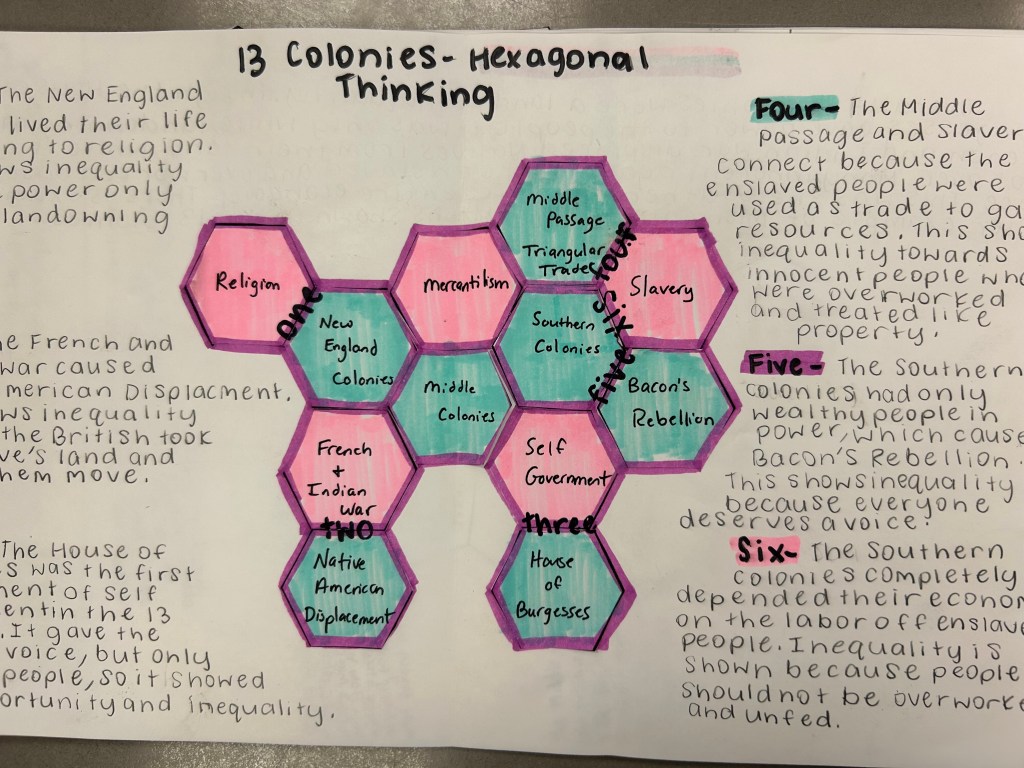 13 Colonies - Hexagonal
Thinking
The New England
lived their life
ng to religion.
ws inequality
power only
landowning
e French and
war caused
merican Displacment.
ws inequality
the British took
ve's land and
hem move.
The House of
s was the first
ment of self
entin the 13
. It gave the
voice, but only
people, so it showed
ortunity and inequality.
Religion
one
New
England
Colonies
French
+
Indian
War
two
Native
American
Displacement
mercantilism
Middle
Colonies
Middle
Passage
Triangular
Trade
four
Slavery
six
Southern
Colonies
five
Bacon's
Rebellion
Self
Government
three
House
of
Burgesses
Four- The Middle
passage and slaver
connect because the
enslaved people were
used as trade to ga
resources. This sho
inequality towards
innocent people who
were overworked
and treated like
property.
Five- The Southern
colonies had only
wealthy people in
power, which cause
Bacon's Rebellion.
This shows inequality
because everyone
deserves a voice.
Six- The Southern
colonies completely
depended their econom
on the labor off enslave
people. Inequality is
shown because people
should not be overworke
and unfed.